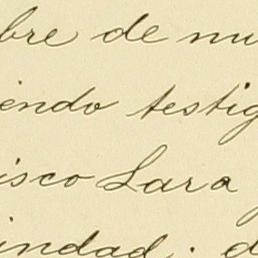 bre de nu
iendo testig
isco Lara
indad. d